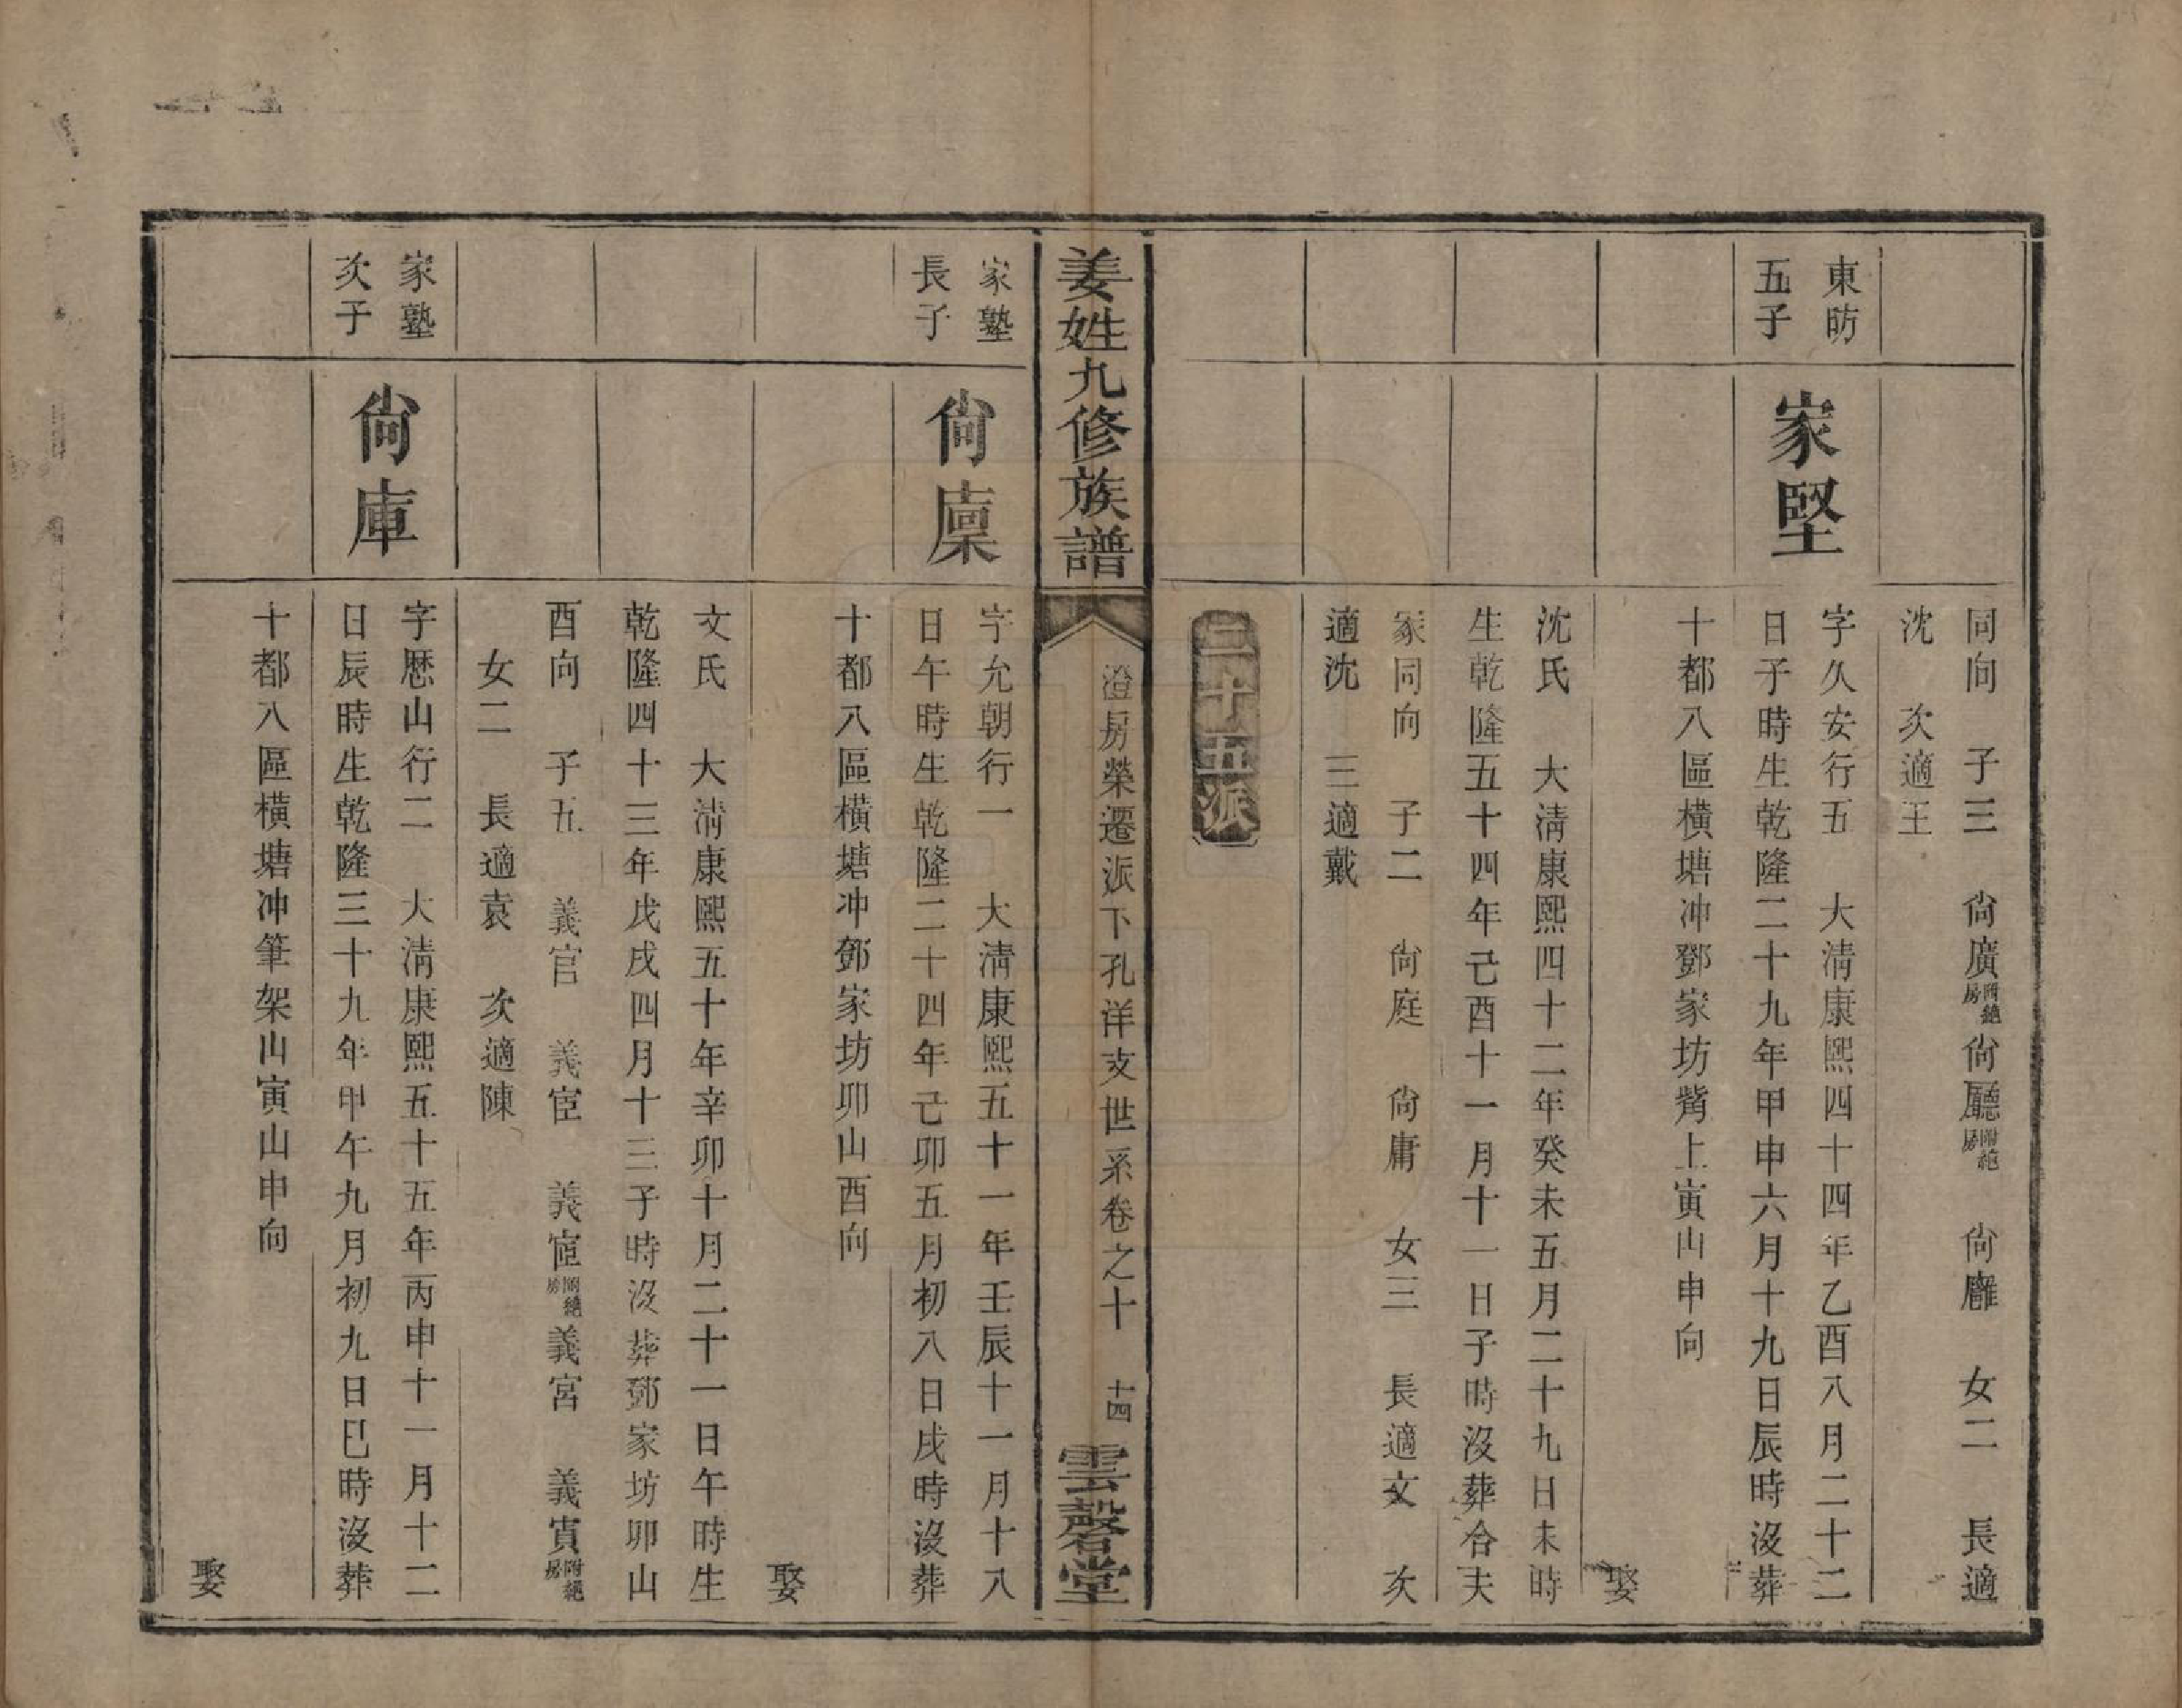 同向　子三　尙廣附絕房尙廳附絕房　尙廱　女二　長適
沈　次適王
東昉
五子
家堅
字久安行五　大淸康熙四十四年乙酉八月二十二
日子時生乾隆二十九年甲申六月十九日辰時沒葬
十都八區橫塘冲鄧家坊觜上寅山申向
娶
沈氏　大淸康熙四十二年癸未五月二十九日未時
生乾隆五十四年己酉十一月十一日子時沒葬合夫
冢同向　子二　尙庭　尙庸　女三　長適文　次
適沈　三適戴
三十五派
姜姓九修族譜
澄房榮遷派下孔洋支世系卷之十　十四
雲磬堂
家塾
長子
尙廩
字允朝行一　大淸康熙五十一年壬辰十一月十八
日午時生乾隆二十四年己卯五月初八日戌時沒葬
十都八區橫塘冲鄧家坊卯山酉向
娶
文氏　大淸康熙五十年辛卯十月二十一日午時生
乾隆四十三年戊戌四月十三子時沒葬鄧家坊卯山
酉向　子五　義官　義宦　義宧附絕房義宮　義賓附絕房
女二　長適袁　次適陳
家塾
次子
尙庫
字歷山行二　大淸康熙五十五年丙申十一月十二
日辰時生乾隆三十九年甲午九月初九日巳時沒葬
十都八區橫塘冲筆架山寅山申向
娶